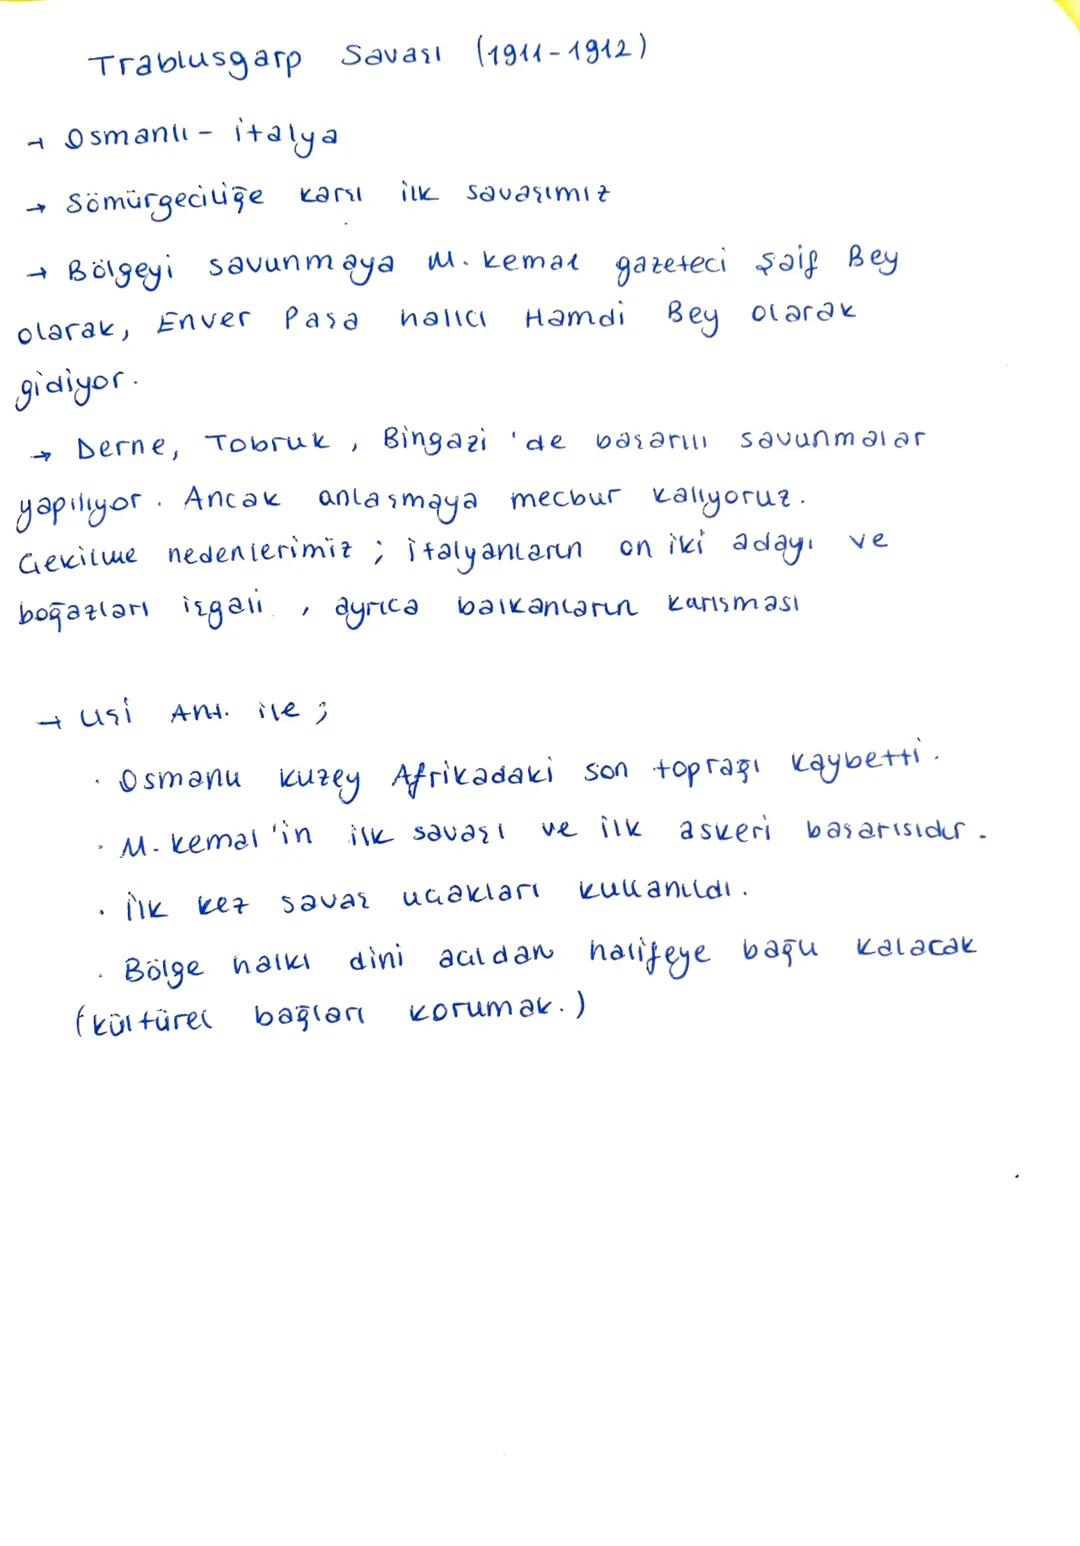 Trablusgarp Savaşı (1911-1912)
→ Osmanlı - italya
→ Sömürgeciliğe karşı ilk savaşımız
→ Bölgeyi savunmaya M. kemal gazeteci Şaif Bey
olarak, Enver Paşa halıcı Hamdi Bey olarak
gidiyor.
→ Derne, Tobruk, Bingazi 'de başarılı savunmalar
yapılıyor. Ancak anlaşmaya mecbur kalıyoruz.
Çekilme nedenlerimiz ; italyanların on iki adayı ve
boğazları işgali , ayrıca balkanların karışması
→ Uşi Ant. ile ;
· Osmanlı kuzey Afrikadaki son toprağı kaybetti.
· M. kemal 'in ilk savaşı ve ilk askeri başarısıdır.
· İlk kez savaş uçakları kullanıldı.
· Bölge halkı dini açıdan halifeye bağlı kalacak
(kültürel bağları korumak.)